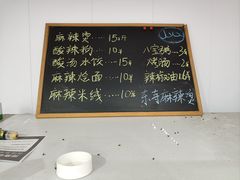 麻辣烫……15/斤
酸辣粉……10元
酸汤水饺……15元
麻辣烩面……10元
麻辣米线……10元
八宝粥…3元
烤油…2元
辣椒油16元
东寺麻辣烫